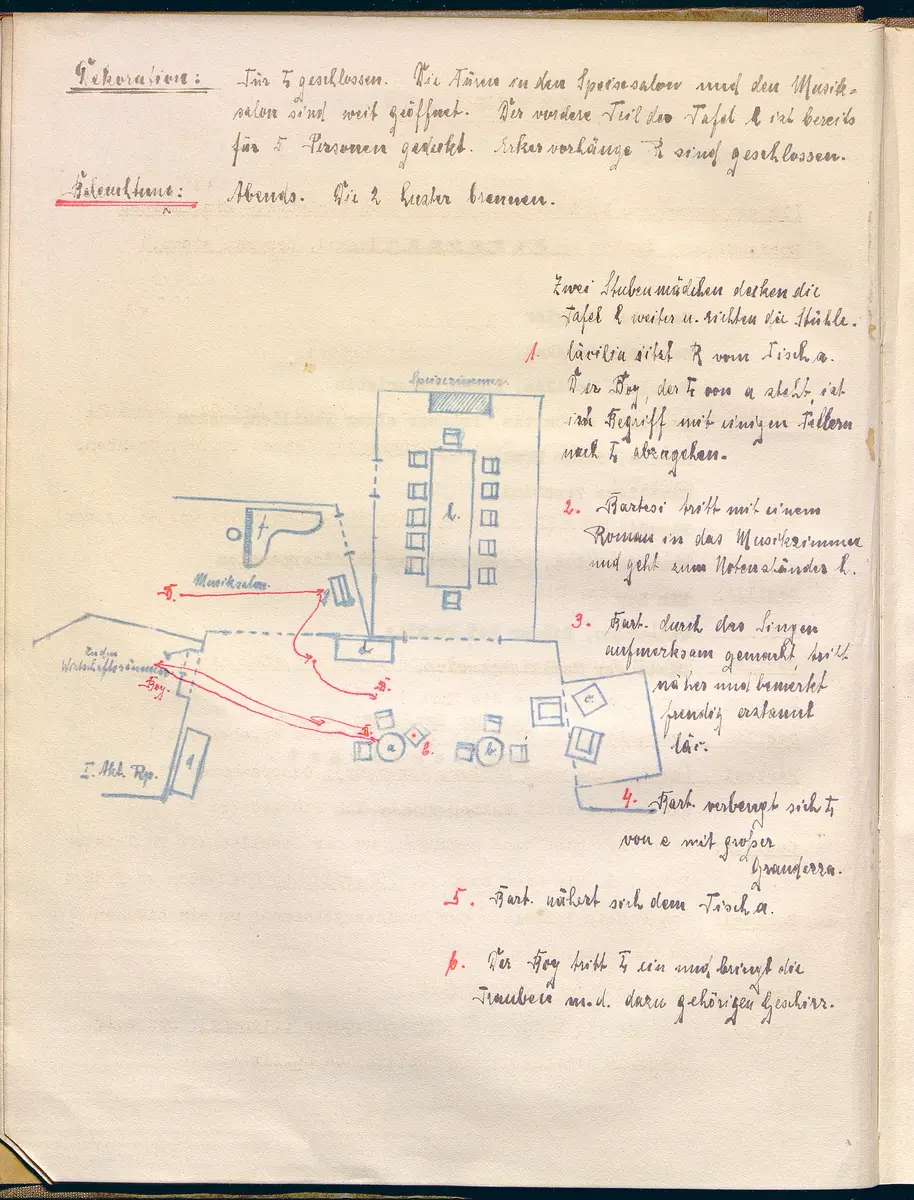 Dekoration: Tür L geschlossen. Die Türen in den Speisesalon und den Musik-
salon sind weit geöffnet. Der vordere Teil der Tafel k ist bereits
für 5 Personen gedeckt. Erkervorhänge R sind geschlossen.
Beleuchtung: Abends. Die 2 Luster brennen.
Zwei Stubenmädchen decken die
Tafel k weiter u. richten die Stühle.
1. Cäcilia sitzt R vom Tisch a.
Der Boy, der L von a steht, ist
im Begriff mit einigen Tellern
nach L abzugehen.
2. Bartesi tritt mit einem
Roman in das Musikzimmer
und geht zum Notenständer
3. Bart. durch das Singen
aufmerksam gemacht, tritt
näher und bemerkt
freudig erstaunt
Cäc.
4. Bart. verbeugt sich L
von c mit großer
Grandezza.
5. Bart. nähert sich dem Tisch a.
6. Der Boy tritt L ein und bringt die
Trauben m. d. dazu gehörigen Geschirr.
Speisezimmer
k.
f
Musiksalon
B.
g
Zu den
Wirtschaftsräumen
Boy.
B.
B.
a
b.
c.
d
I. Akt. Rp.